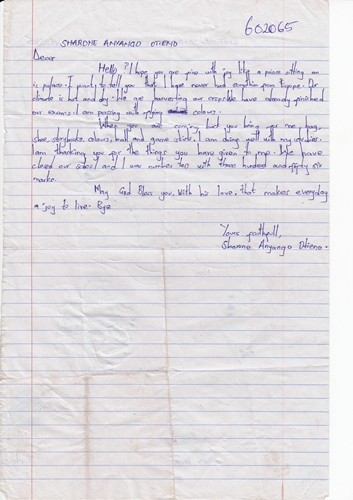 602065
SHARONE ANYANGO OTIENO
Dear
Hello? I hope you are fine with joy like a prince sitting on
is palace. I want to tell you that I have never had
climate is hot and dry. We are have already finished
our exams. I am passing with flying colours.
When you are coming but you bring me bag,
shoe, storybooks, colours, ball and game skirt. I am doing well with my studies.
I am thanking you for the things you have given to me. We have
closed our school and I was number two with three hundred and fifty six
marks.
May God Bless you. With his love, that makes everyday
a joy to live. Bye
Yours faithfull,
Sharone Anyango Otieno.